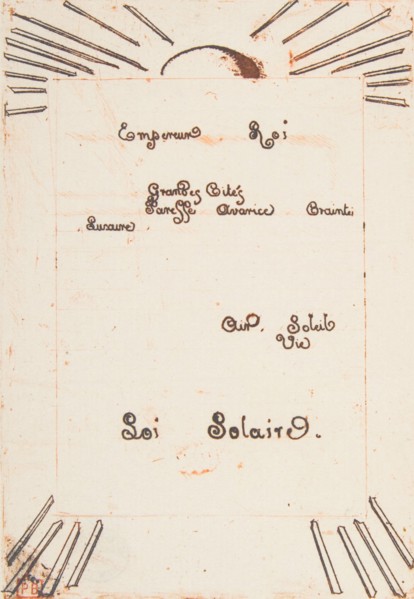 Empereur Roi
Grandes Cités
Paresse Avarice Crainte
Air. Soleil
Vie
Loi Solaire.
PB